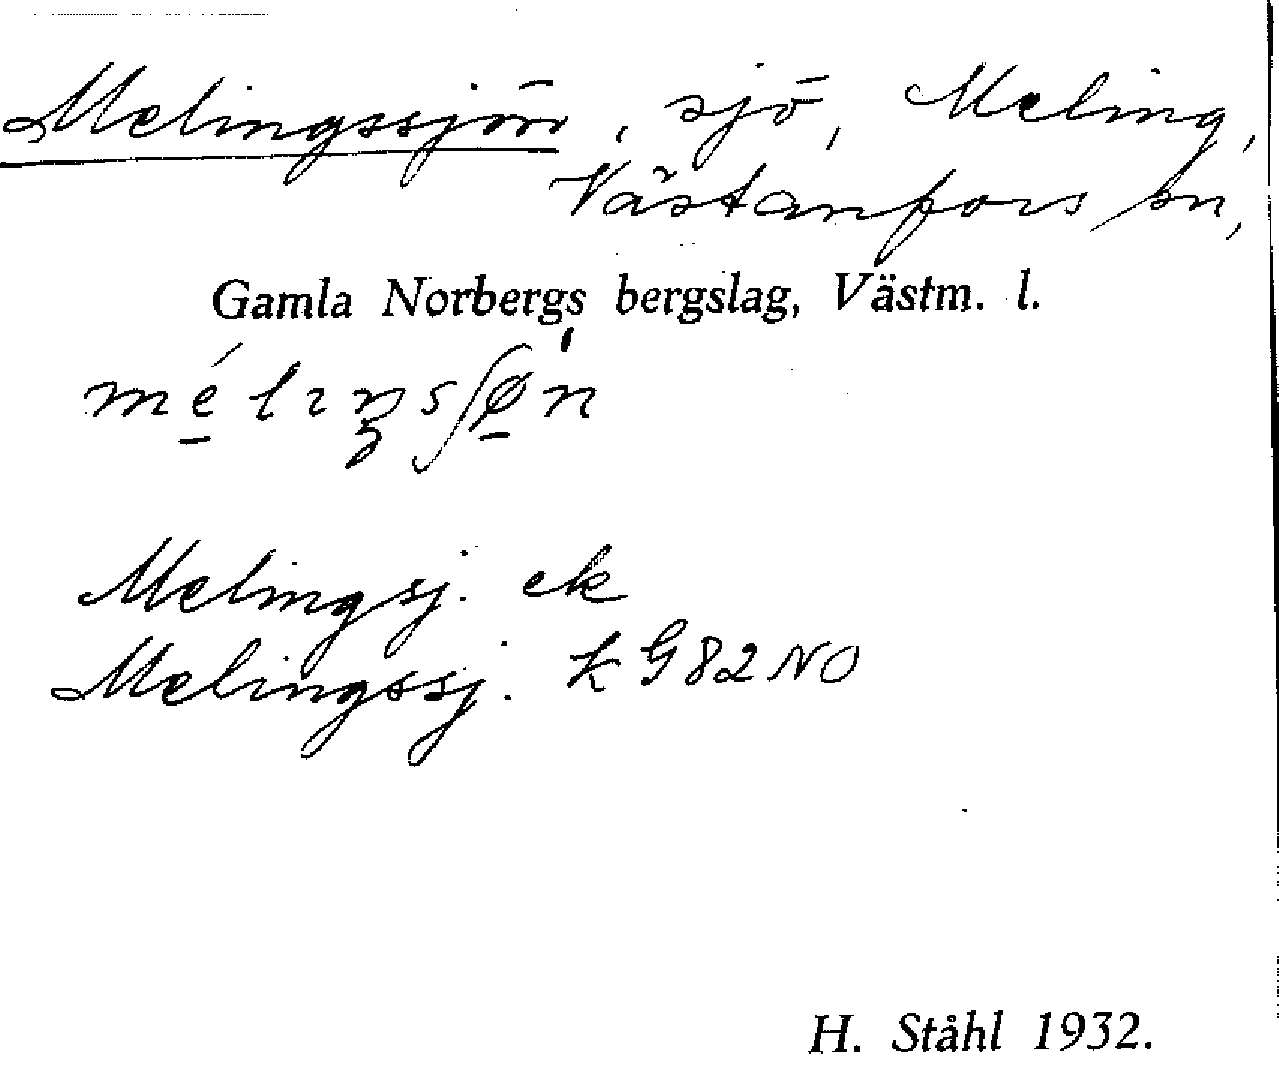 Melingssjön, sjö, Meling,
Västanfors sn,
Gamla Norbergs bergslag, Västm. l.
Melingsj. ek
Melingssj. k G82NO
H. Ståhl 1932.